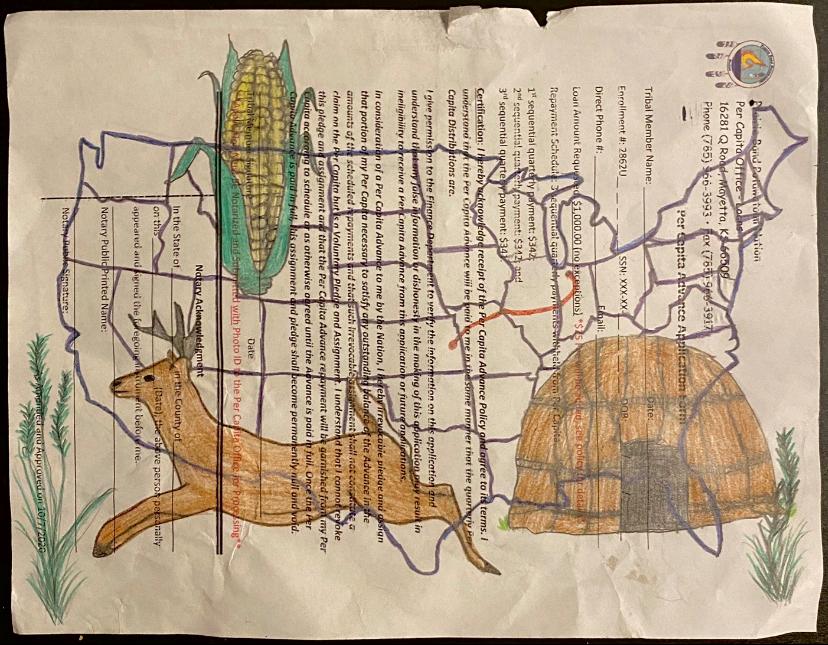 Prairie Band Potawatomi Nation
Per Capita Office - Loans
16281 Q Road, Mayetta, KS 66509
Phone (765) 966-3993 • Fax (765) 966-3917
Per Capita Advance Application Form
Tribal Member Name: Date:
Enrollment #: 2862U SSN: XXX-XX- DOB: / /
Direct Phone #: Email:
Loan Amount Requested $1,000.00 (no exceptions) *$25
Repayment Schedule: 3 sequential quarterly payments withheld from Per Capita
1st sequential quarterly payment: $342;
2nd sequential quarterly payment: $342; and
3rd sequential quarterly payment: $341
Certification: I hereby acknowledge receipt of the Per Capita Advance Policy and agree to its terms. I
understand that the Per Capita Advance will be paid to me in the same manner that the quarterly Per
Capita Distributions are.
I give permission to the Finance Department to verify the information on the application and
understand that any false information or dishonesty in the making of this application may result in
ineligibility to receive a Per Capita Advance from this application or future applications.
In consideration of a Per Capita Advance to me by the Nation, I hereby irrevocable pledge and assign
that portion of my Per Capita necessary to satisfy any outstanding balance of the Advance in the
amounts of the scheduled repayments and that such irrevocable assignment shall not constitute a
claim on the Per Capita but is a Voluntary Pledge and Assignment. I understand that I cannot revoke
this pledge and assignment and that the Per Capita Advance repayment will be garnished from my Per
Capita according to schedule or as otherwise agreed until the Advance is paid in full. Once the Per
Capita Advance is paid in full, this assignment and pledge shall become permanently null and void.
Tribal Member Signature Date
Notarized and Submitted with Photo ID to the Per Capita Office for Processing**
Notary Acknowledgment
In the State of in the County of
On this (Date), the above person personally
appeared and signed the foregoing instrument before me.
Notary Public Printed Name:
Notary Public Signature:
Amended and Approved on 10/7/2020